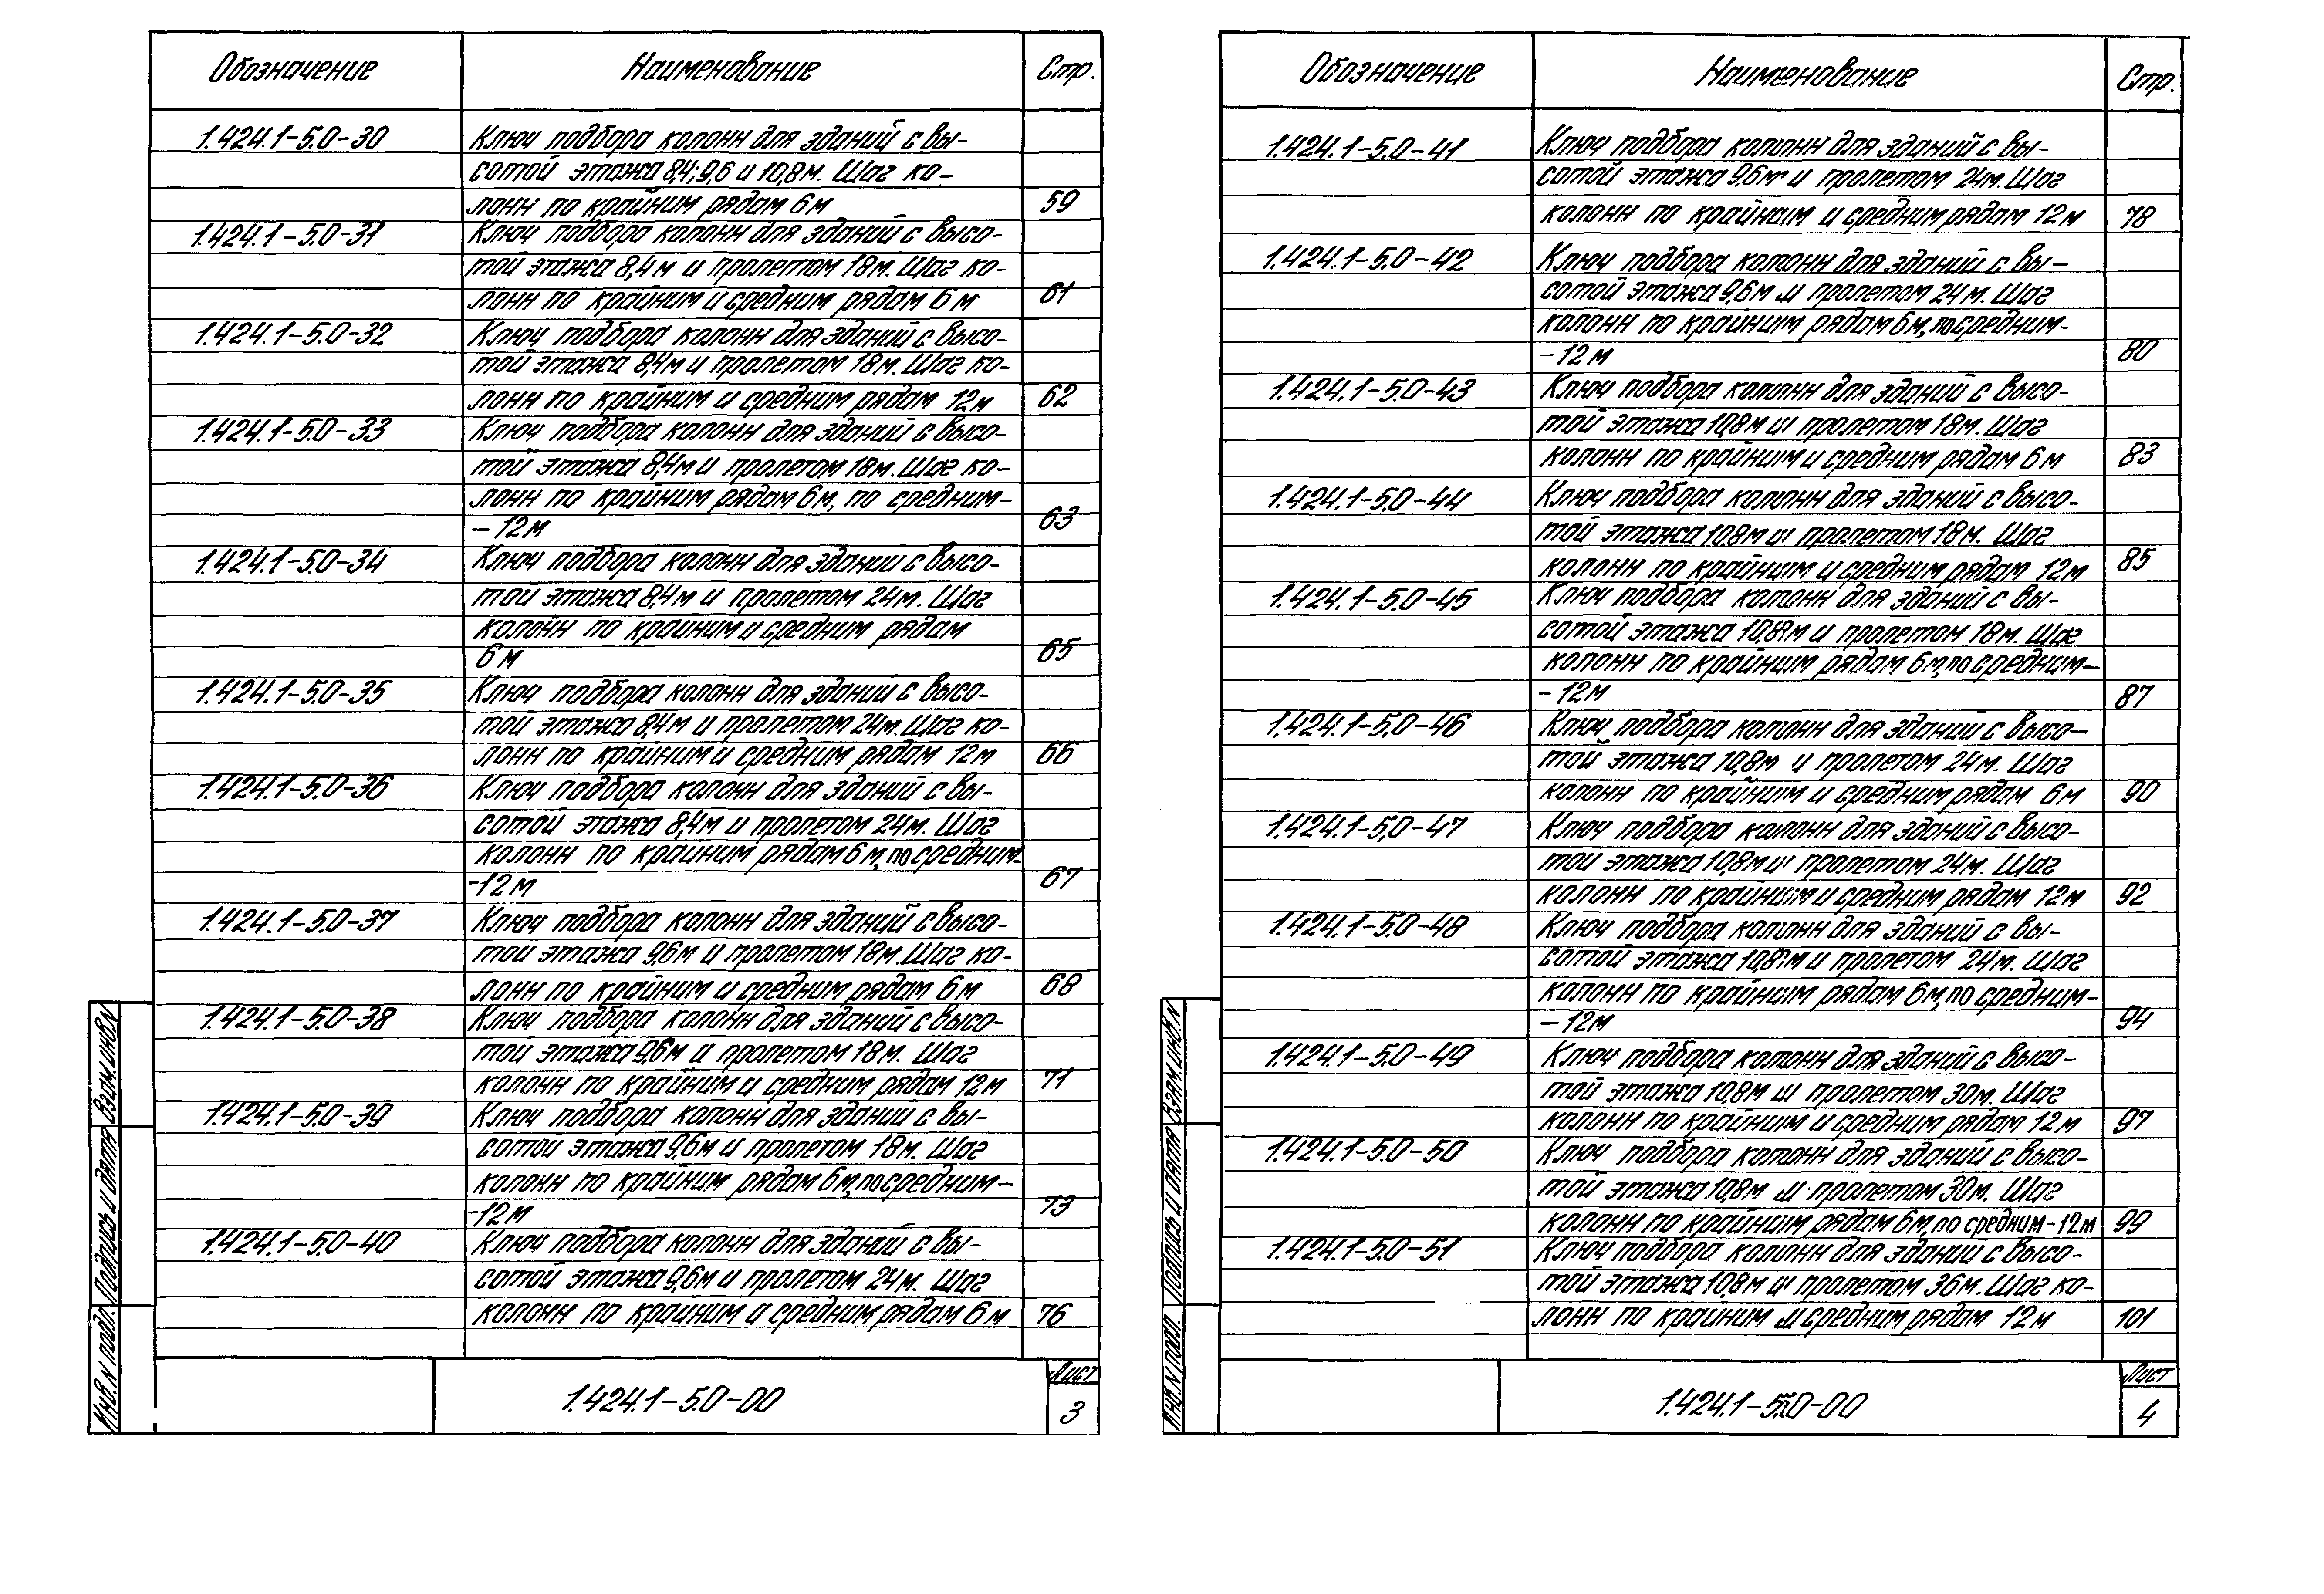 Обозначение Наименование Стр.
1.424.1-5.0-30 Ключ подбора колонн для зданий с вы-
сотой этажа 8,4; 9,6 и 10,8м. Шаг ко-
лонн по крайним рядам 6м 59
1.424.1-5.0-31 Ключ подбора колонн для зданий с высо-
той этажа 8,4м и пролетом 18м. Шаг ко-
лонн по крайним и средним рядам 6м 61
1.424.1-5.0-32 Ключ подбора колонн для зданий с высо-
той этажа 8,4м и пролетом 18м. Шаг ко-
лонн по крайним и средним рядам 12м 62
1.424.1-5.0-33 Ключ подбора колонн для зданий с высо-
той этажа 8,4м и пролетом 18м. Шаг ко-
лонн по крайним рядам 6м, по средним-
-12м 63
1.424.1-5.0-34 Ключ подбора колонн для зданий с высо-
той этажа 8,4м и пролетом 24м. Шаг
колонн по крайним и средним рядам
6м 65
1.424.1-5.0-35 Ключ подбора колонн для зданий с высо-
той этажа 8,4м и пролетом 24м. Шаг ко-
лонн по крайним и средним рядам 12м 66
1.424.1-5.0-36 Ключ подбора колонн для зданий с вы-
сотой этажа 8,4м и пролетом 24м. Шаг
колонн по крайним рядам 6м, по средним-
-12м 67
1.424.1-5.0-37 Ключ подбора колонн для зданий с высо-
той этажа 9,6м и пролетом 18м. Шаг ко-
лонн по крайним и средним рядам 6м 68
1.424.1-5.0-38 Ключ подбора колонн для зданий с высо-
той этажа 9,6м и пролетом 18м. Шаг
колонн по крайним и средним рядам 12м 71
1.424.1-5.0-39 Ключ подбора колонн для зданий с вы-
сотой этажа 9,6м и пролетом 18м. Шаг
колонн по крайним рядам 6м, по средним-
-12м 73
1.424.1-5.0-40 Ключ подбора колонн для зданий с вы-
сотой этажа 9,6м и пролетом 24м. Шаг
колонн по крайним и средним рядам 6м 76
Взам. инв. N
Подпись и дата
Инв. N подл.
1.424.1-5.0-00
Лист
3
Обозначение Наименование Стр.
1.424.1-5.0-41 Ключ подбора колонн для зданий с вы-
сотой этажа 9,6м и пролетом 24м. Шаг
колонн по крайним и средним рядам 12м 78
1.424.1-5.0-42 Ключ подбора колонн для зданий с вы-
сотой этажа 9,6м и пролетом 24м. Шаг
колонн по крайним рядам 6м, по средним-
-12м 80
1.424.1-5.0-43 Ключ подбора колонн для зданий с высо-
той этажа 10,8м и пролетом 18м. Шаг
колонн по крайним и средним рядам 6м 83
1.424.1-5.0-44 Ключ подбора колонн для зданий с высо-
той этажа 10,8м и пролетом 18м. Шаг
колонн по крайним и средним рядам 12м 85
1.424.1-5.0-45 Ключ подбора колонн для зданий с вы-
сотой этажа 10,8м и пролетом 18м. Шаг
колонн по крайним рядам 6м, по средним-
-12м 87
1.424.1-5.0-46 Ключ подбора колонн для зданий с высо-
той этажа 10,8м и пролетом 24м. Шаг
колонн по крайним и средним рядам 6м 90
1.424.1-5.0-47 Ключ подбора колонн для зданий с высо-
той этажа 10,8м и пролетом 24м. Шаг
колонн по крайним и средним рядам 12м 92
1.424.1-5.0-48 Ключ подбора колонн для зданий с вы-
сотой этажа 10,8м и пролетом 24м. Шаг
колонн по крайним рядам 6м, по средним-
-12м 94
1.424.1-5.0-49 Ключ подбора колонн для зданий с высо-
той этажа 10,8м и пролетом 30м. Шаг
колонн по крайним и средним рядам 12м 97
1.424.1-5.0-50 Ключ подбора колонн для зданий с высо-
той этажа 10,8м и пролетом 30м. Шаг
колонн по крайним рядам 6м, по средним-12м 99
1.424.1-5.0-51 Ключ подбора колонн для зданий с высо-
той этажа 10,8м и пролетом 36м. Шаг ко-
лонн по крайним и средним рядам 12м 101
Взам. инв. N
Подпись и дата
Инв. N подл.
1.424.1-5.0-00
Лист
4